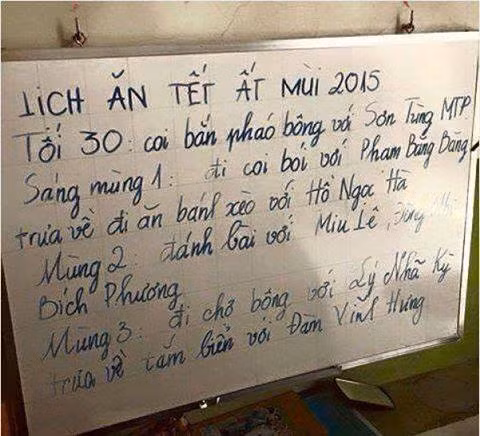 LỊCH ĂN TẾT ẤT MÙI 2015
Tối 30: coi bắn pháo bông với Sơn Tùng MTP
Sáng mùng 1: đi coi bói với Phạm Băng Băng
trưa về đi ăn bánh xèo với Hồ Ngọc Hà
Mùng 2: đánh bài với Miu Lê, Đông Nhi
Bích Phương
Mùng 3: đi chở bông với Lý Nhã Kỳ
trưa về tắm biển với Đàm Vĩnh Hưng